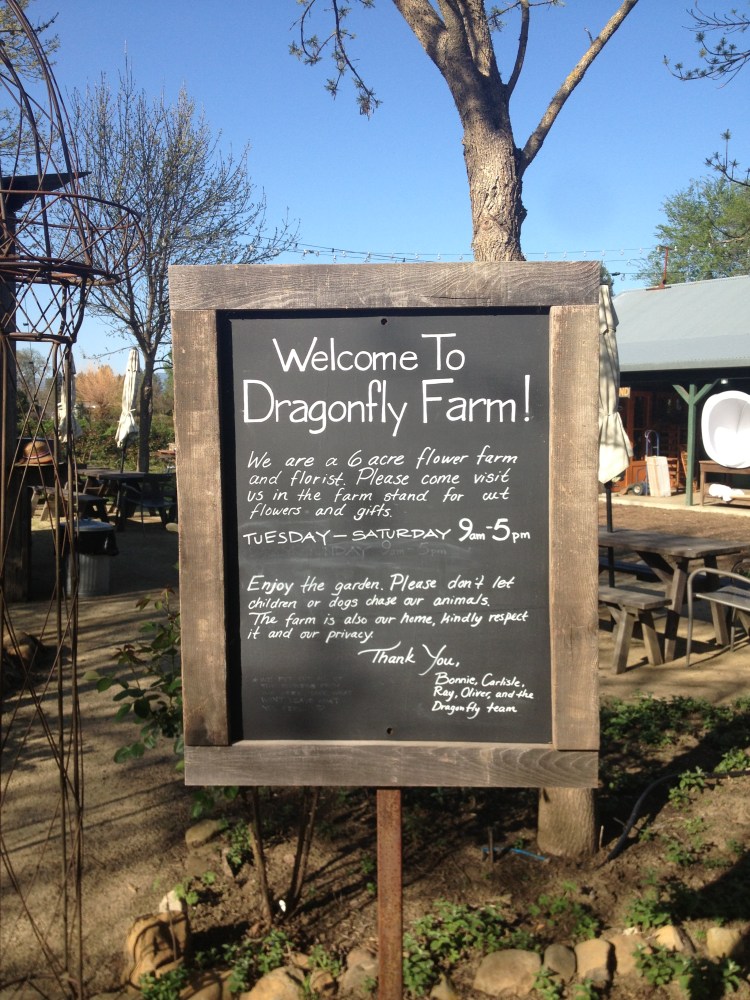 Welcome To
Dragonfly Farm!
We are a 6 acre flower farm
and florist. Please come visit
us in the farm stand for cut
flowers and gifts.
TUESDAY – SATURDAY 9am - 5pm
Enjoy the garden. Please don't let
children or dogs chase our animals.
The farm is also our home, kindly respect
it and our privacy.
Thank You,
Bonnie, Carlisle,
Ray, Oliver, and the
Dragonfly team